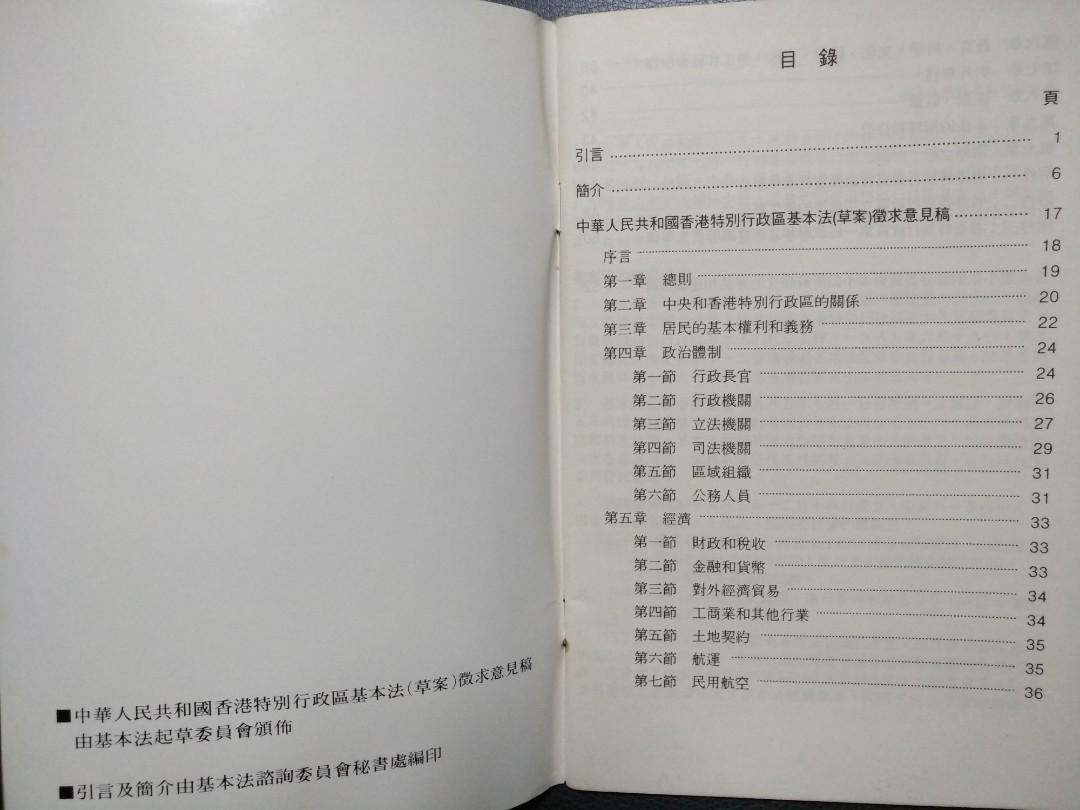 ■中華人民共和國香港特別行政區基本法(草案)徵求意見稿
由基本法起草委員會頒佈
■引言及簡介由基本法諮詢委員會秘書處編印
目錄
頁
引言 1
簡介 6
中華人民共和國香港特別行政區基本法(草案)徵求意見稿 17
序言 18
第一章 總則 19
第二章 中央和香港特別行政區的關係 20
第三章 居民的基本權利和義務 22
第四章 政治體制 24
第一節 行政長官 24
第二節 行政機關 26
第三節 立法機關 27
第四節 司法機關 29
第五節 區域組織 31
第六節 公務人員 31
第五章 經濟 33
第一節 財政和稅收 33
第二節 金融和貨幣 33
第三節 對外經濟貿易 34
第四節 工商業和其他行業 34
第五節 土地契約 35
第六節 航運 35
第七節 民用航空 36